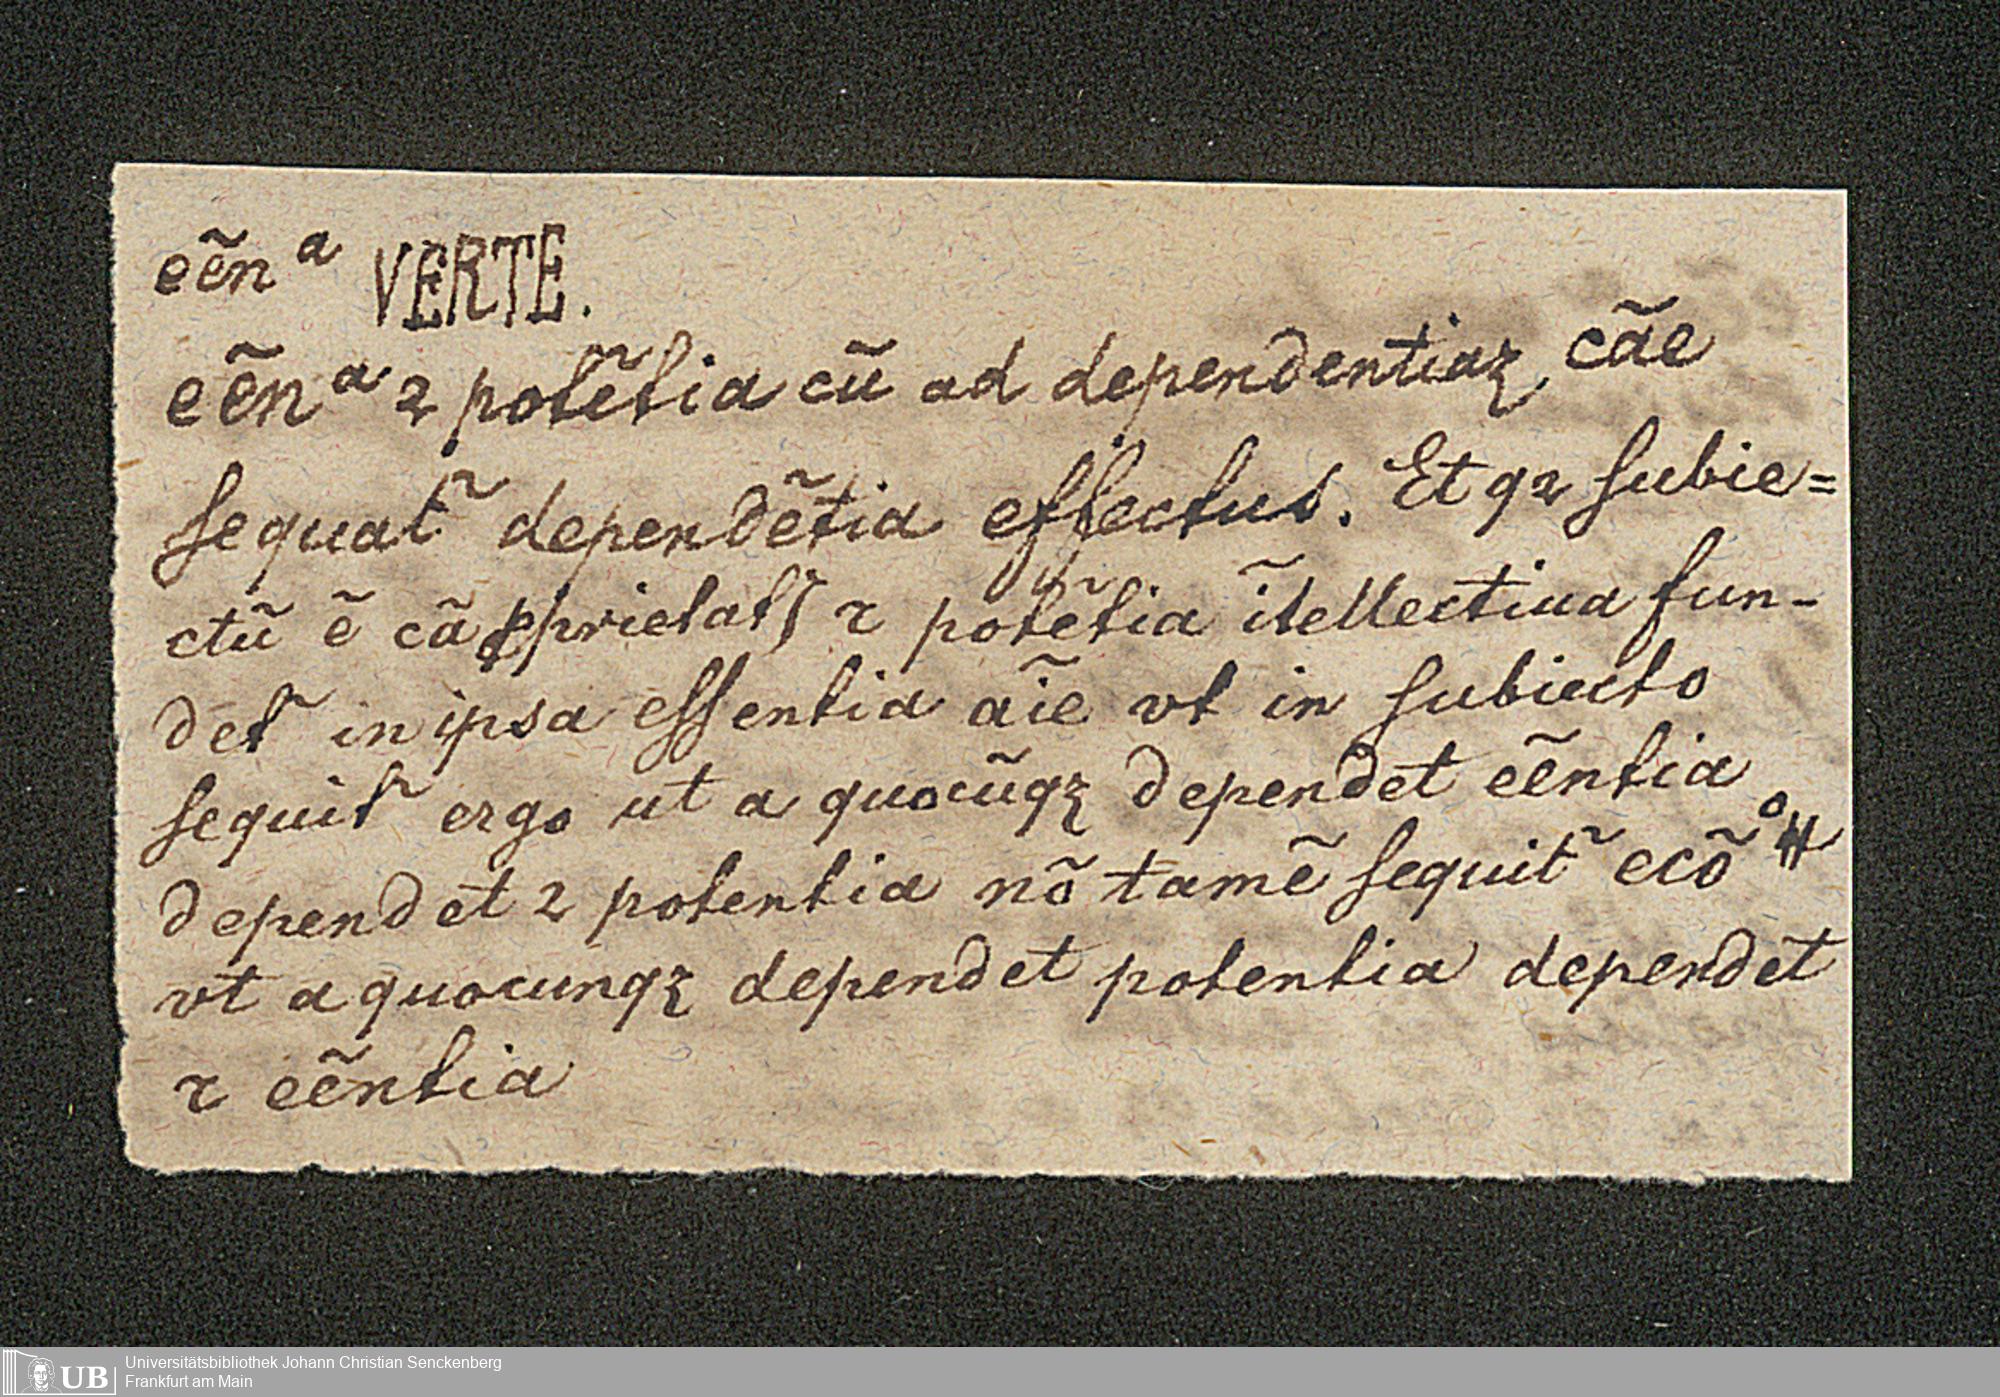 eēnᵃ VERTE.
eēnᵃ ⁊ potẽtia cū ad dependentiaꝫ cãe
sequat᷑ dependẽtia effectus. Et qꝛ subie=
ctū ē cā ꝓprietatꝭ ⁊ potẽtia ĩtellectiua fun-
det᷑ in ipsa essentia aĩe vt in subiecto
sequit᷑ ergo ut a quocũqꝫ dependet eẽntia
dependet ⁊ potentia nõ tamē sequit᷑ ecõº
vt a quocunqꝫ dependet potentia dependet
⁊ eẽntia
UB Universitätsbibliothek Johann Christian Senckenberg
Frankfurt am Main